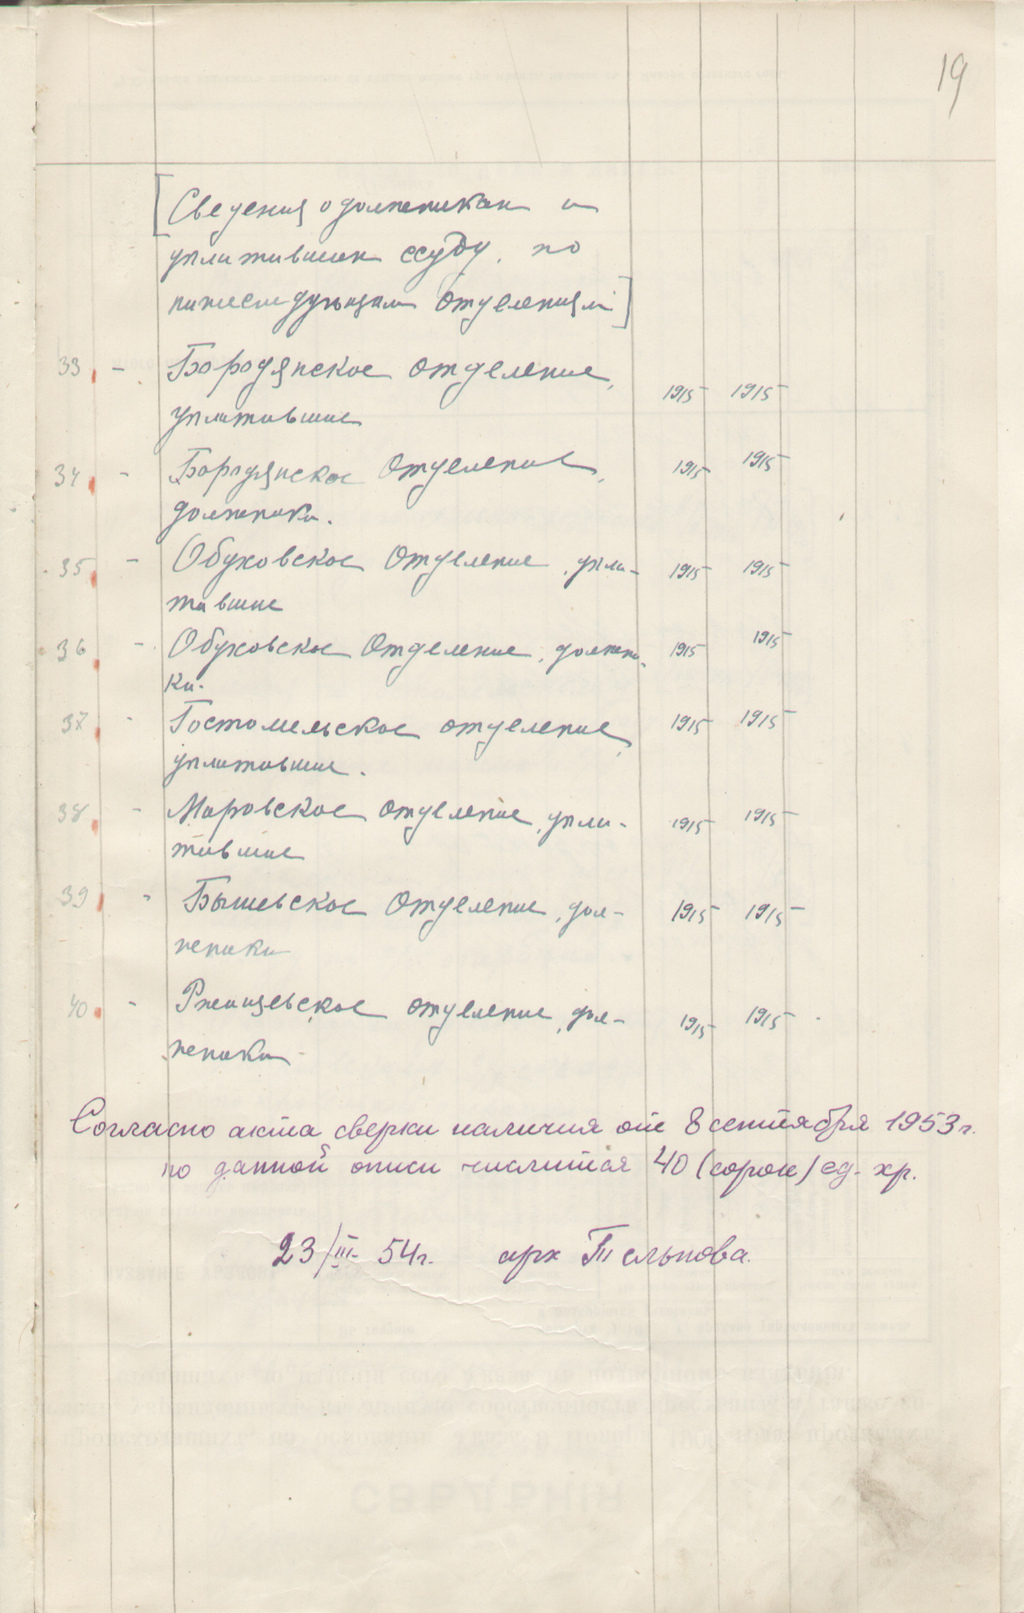 19
[Сведения о должниках и
уплативших ссуду по
нижеследующим отделениям]
33 - Бородянское отделение, 1915 1915
уплатившие
34 - Бородянское отделение, 1915 1915
должники.
35 - Обуховское отделение, упла- 1915 1915
тившие
36 - Обуховское отделение, должни- 1915 1915
ки.
37 - Гостомельское отделение, 1915 1915
уплатившие.
38 - Маровское отделение, упла- 1915 1915
тившие
39 - Бышевское отделение, дол- 1915 1915
жники
40 - Ржищевское отделение, дол- 1915 1915
жники
Согласно акта сверки наличия от 8 сентября 1953 г.
по данной описи числится 40 (сорок) ед. хр.
23/III- 54 г. арх Тельнова.